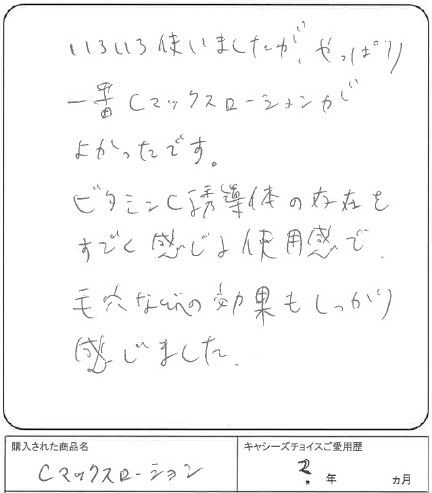 いろいろ使いましたが、やっぱり
一番Cマックスローションが
よかったです。
ビタミンC誘導体の存在を
すごく感じる使用感で、
毛穴などの効果もしっかり
感じました。
購入された商品名
Cマックスローション
キャシーズチョイスご愛用歴
? 年 ヵ月